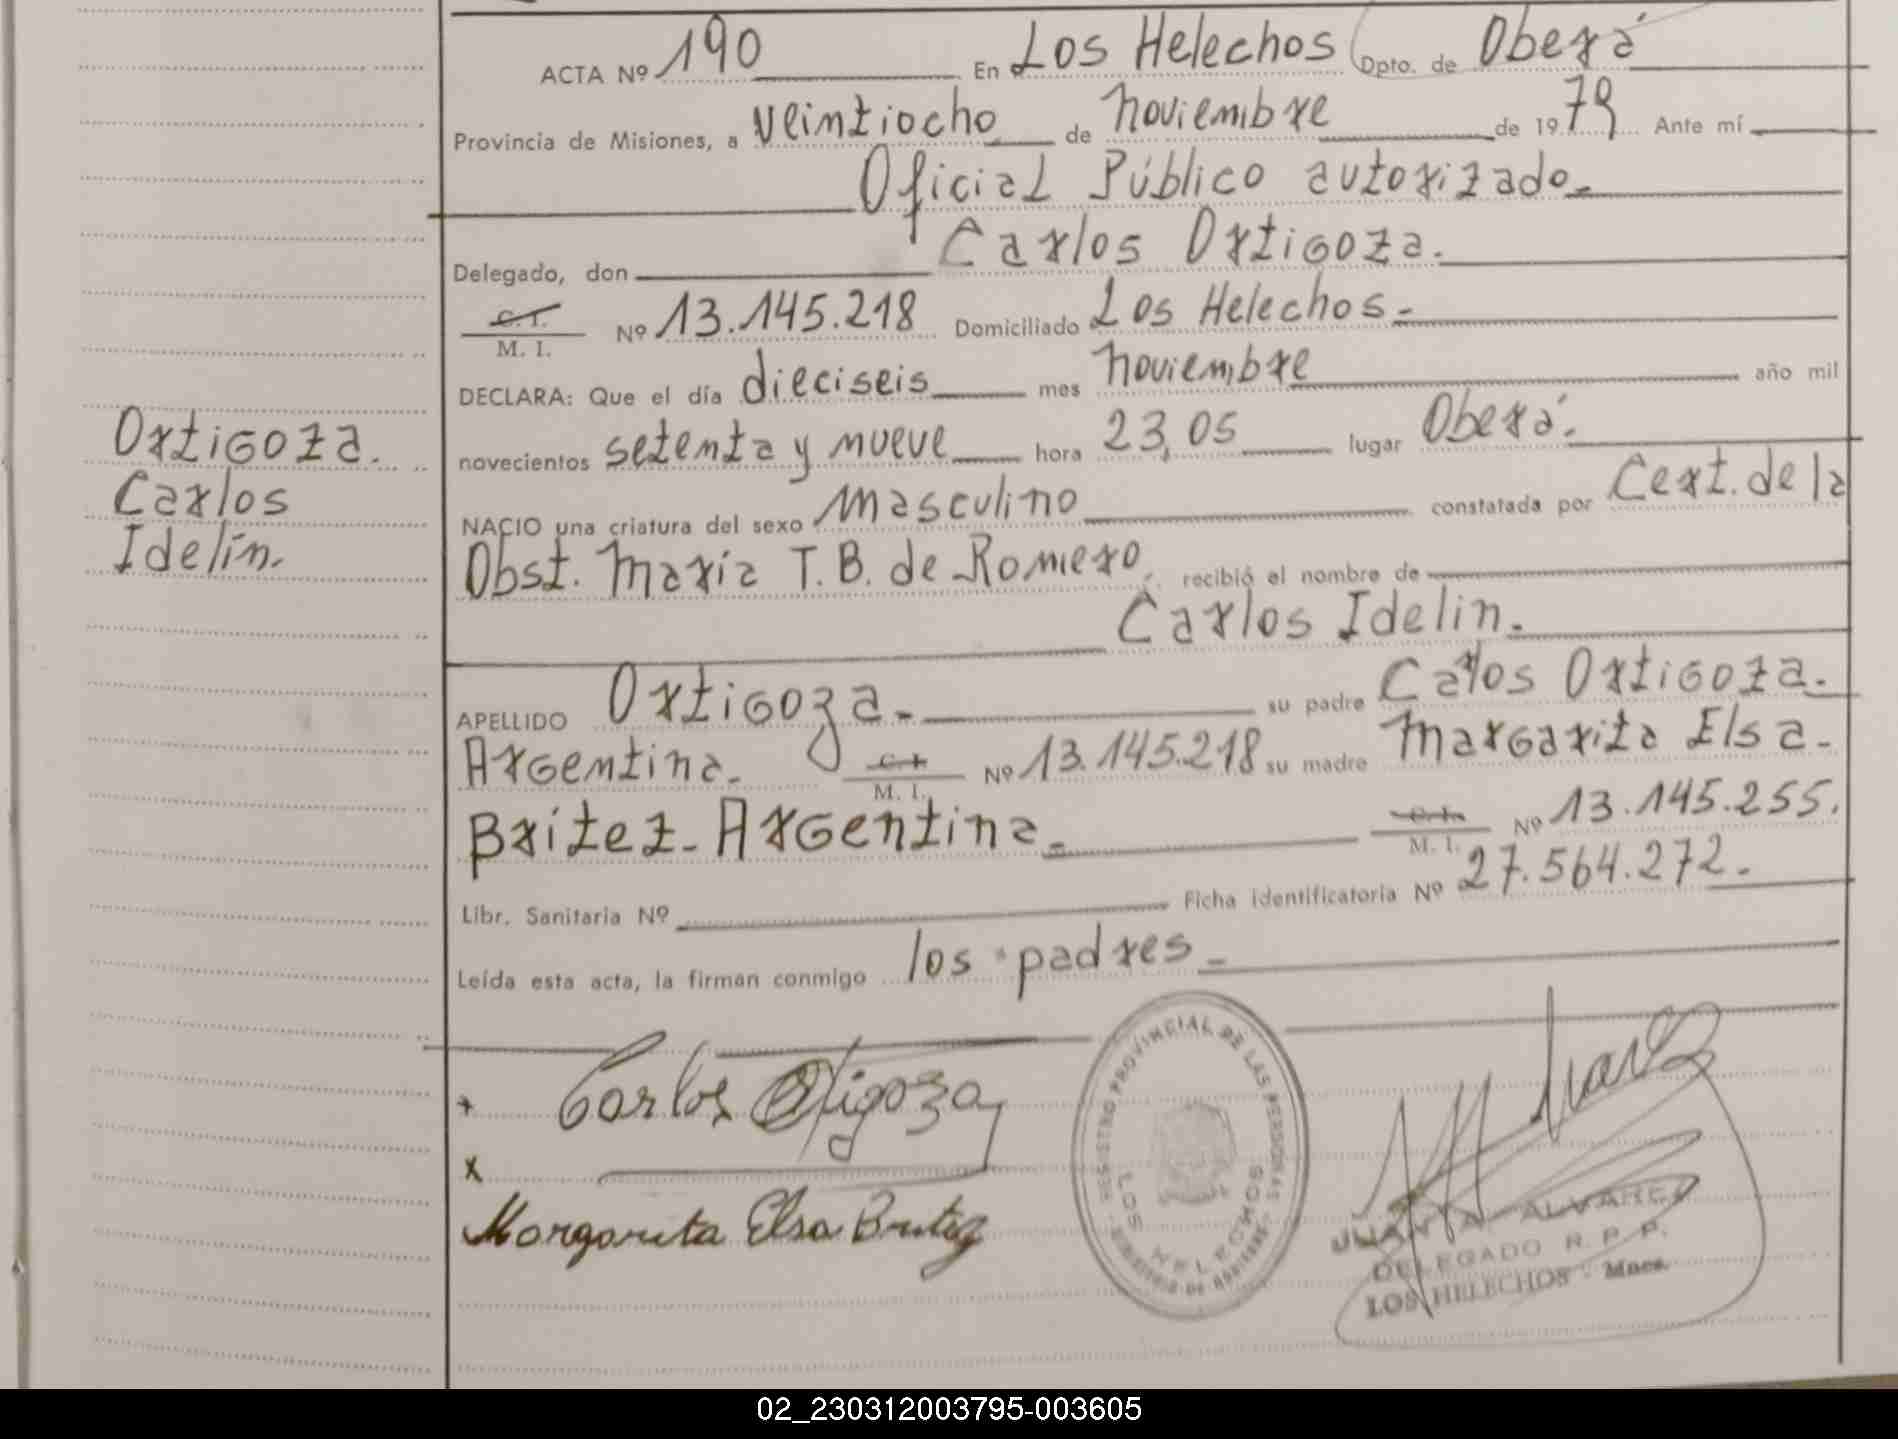 ACTA Nº 190 En Los Helechos Dpto. de Oberá
Provincia de Misiones, a veintiocho de noviembre de 1979 Ante mí
Oficial Público autorizado.
Delegado, don Carlos Ortigoza.
C. I. M. I. Nº 13.145.218 Domiciliado Los Helechos.
DECLARA: Que el día dieciseis mes noviembre año mil
novecientos setenta y nueve hora 23,05 lugar Oberá.
NACIO una criatura del sexo masculino constatada por Cert. de la
Obst. Maria T. B. de Romero. recibió el nombre de
Carlos Idelin.
Ortigoza.
Carlos
Idelin.
APELLIDO Ortigoza. su padre Carlos Ortigoza.
Argentina. C. I. M. I. Nº 13.145.218 su madre Margarita Elsa
Britez. Argentina. C. I. M. I. Nº 13.145.255.
Libr. Sanitaria Nº Ficha identificatoria Nº 27.564.272.
Leída esta acta, la firman conmigo los padres.
+ Carlos Ortigoza
x
Margarita Elsa Britez
REGISTRO PROVINCIAL DE LAS PERSONAS
LOS HELECHOS
JUAN A. ALVAREZ
DELEGADO R. P. P.
LOS HELECHOS - Mnes.
02_230312003795-003605